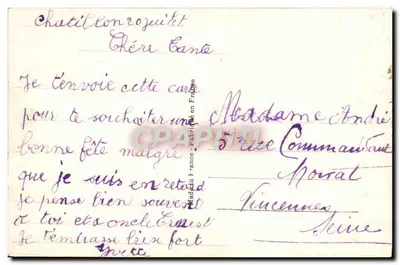 Chatillon 20 juillet
Chére tante
Je t'envoie cette carte
pour te souhaiter une
bonne fête malgré
que je suis en retard
je pense bien souvent
a toi et a oncle Ernest
Je t'embrasse bien fort
Yvette
Madame André
5 rue Commandant
Vincennes
Seine
Made in France - Fabriqué en France
CPARAMA